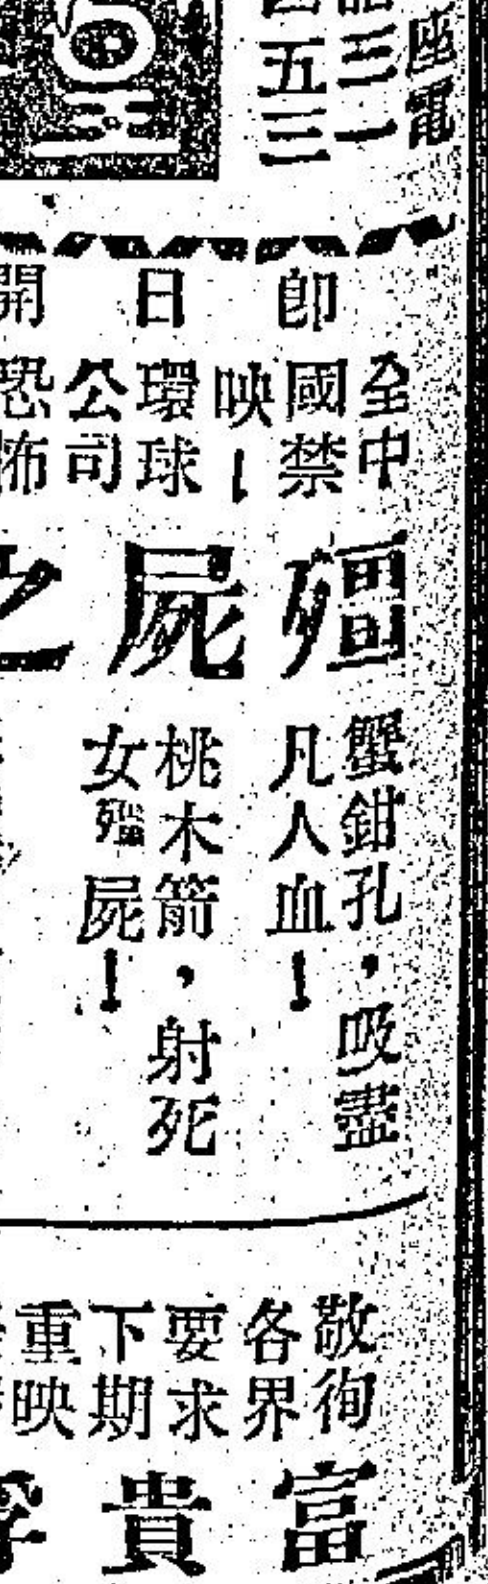 座電
三一
五三
即日開
全中
國禁
映！
環球
公司
恐怖
殭屍之
蟹鉗孔，吸盡
凡人血！
桃木箭，射死
女殭屍！
敬徇
各界
要求
下期
重映
富貴浮